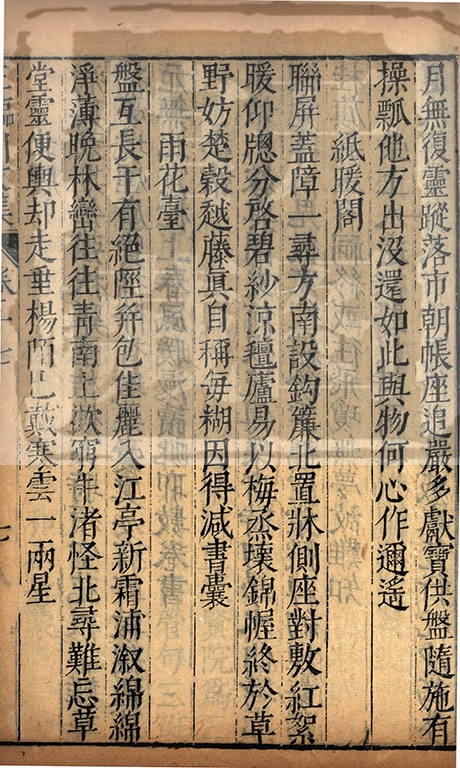 月無復靈蹤落市朝帳座追嚴多獻寶供盤隨施有
操瓢他方出沒還如此與物何心作邇遥
紙暖閣
聯屏蓋障一尋方南設鈎簾北置牀側座對敷紅絮
暖仰牕分啓碧紗涼氊廬易以梅蒸壞錦幄終於草
野妨楚縠越藤眞自稱每糊因得減書囊
雨花臺
盤互長干有絕陘幷包佳麗入江亭新霜浦溆綿綿
淨薄晚林巒往往靑南上欲窮牛渚怪北尋難忘草
堂靈便輿却走垂楊陌已戴寒雲一兩星